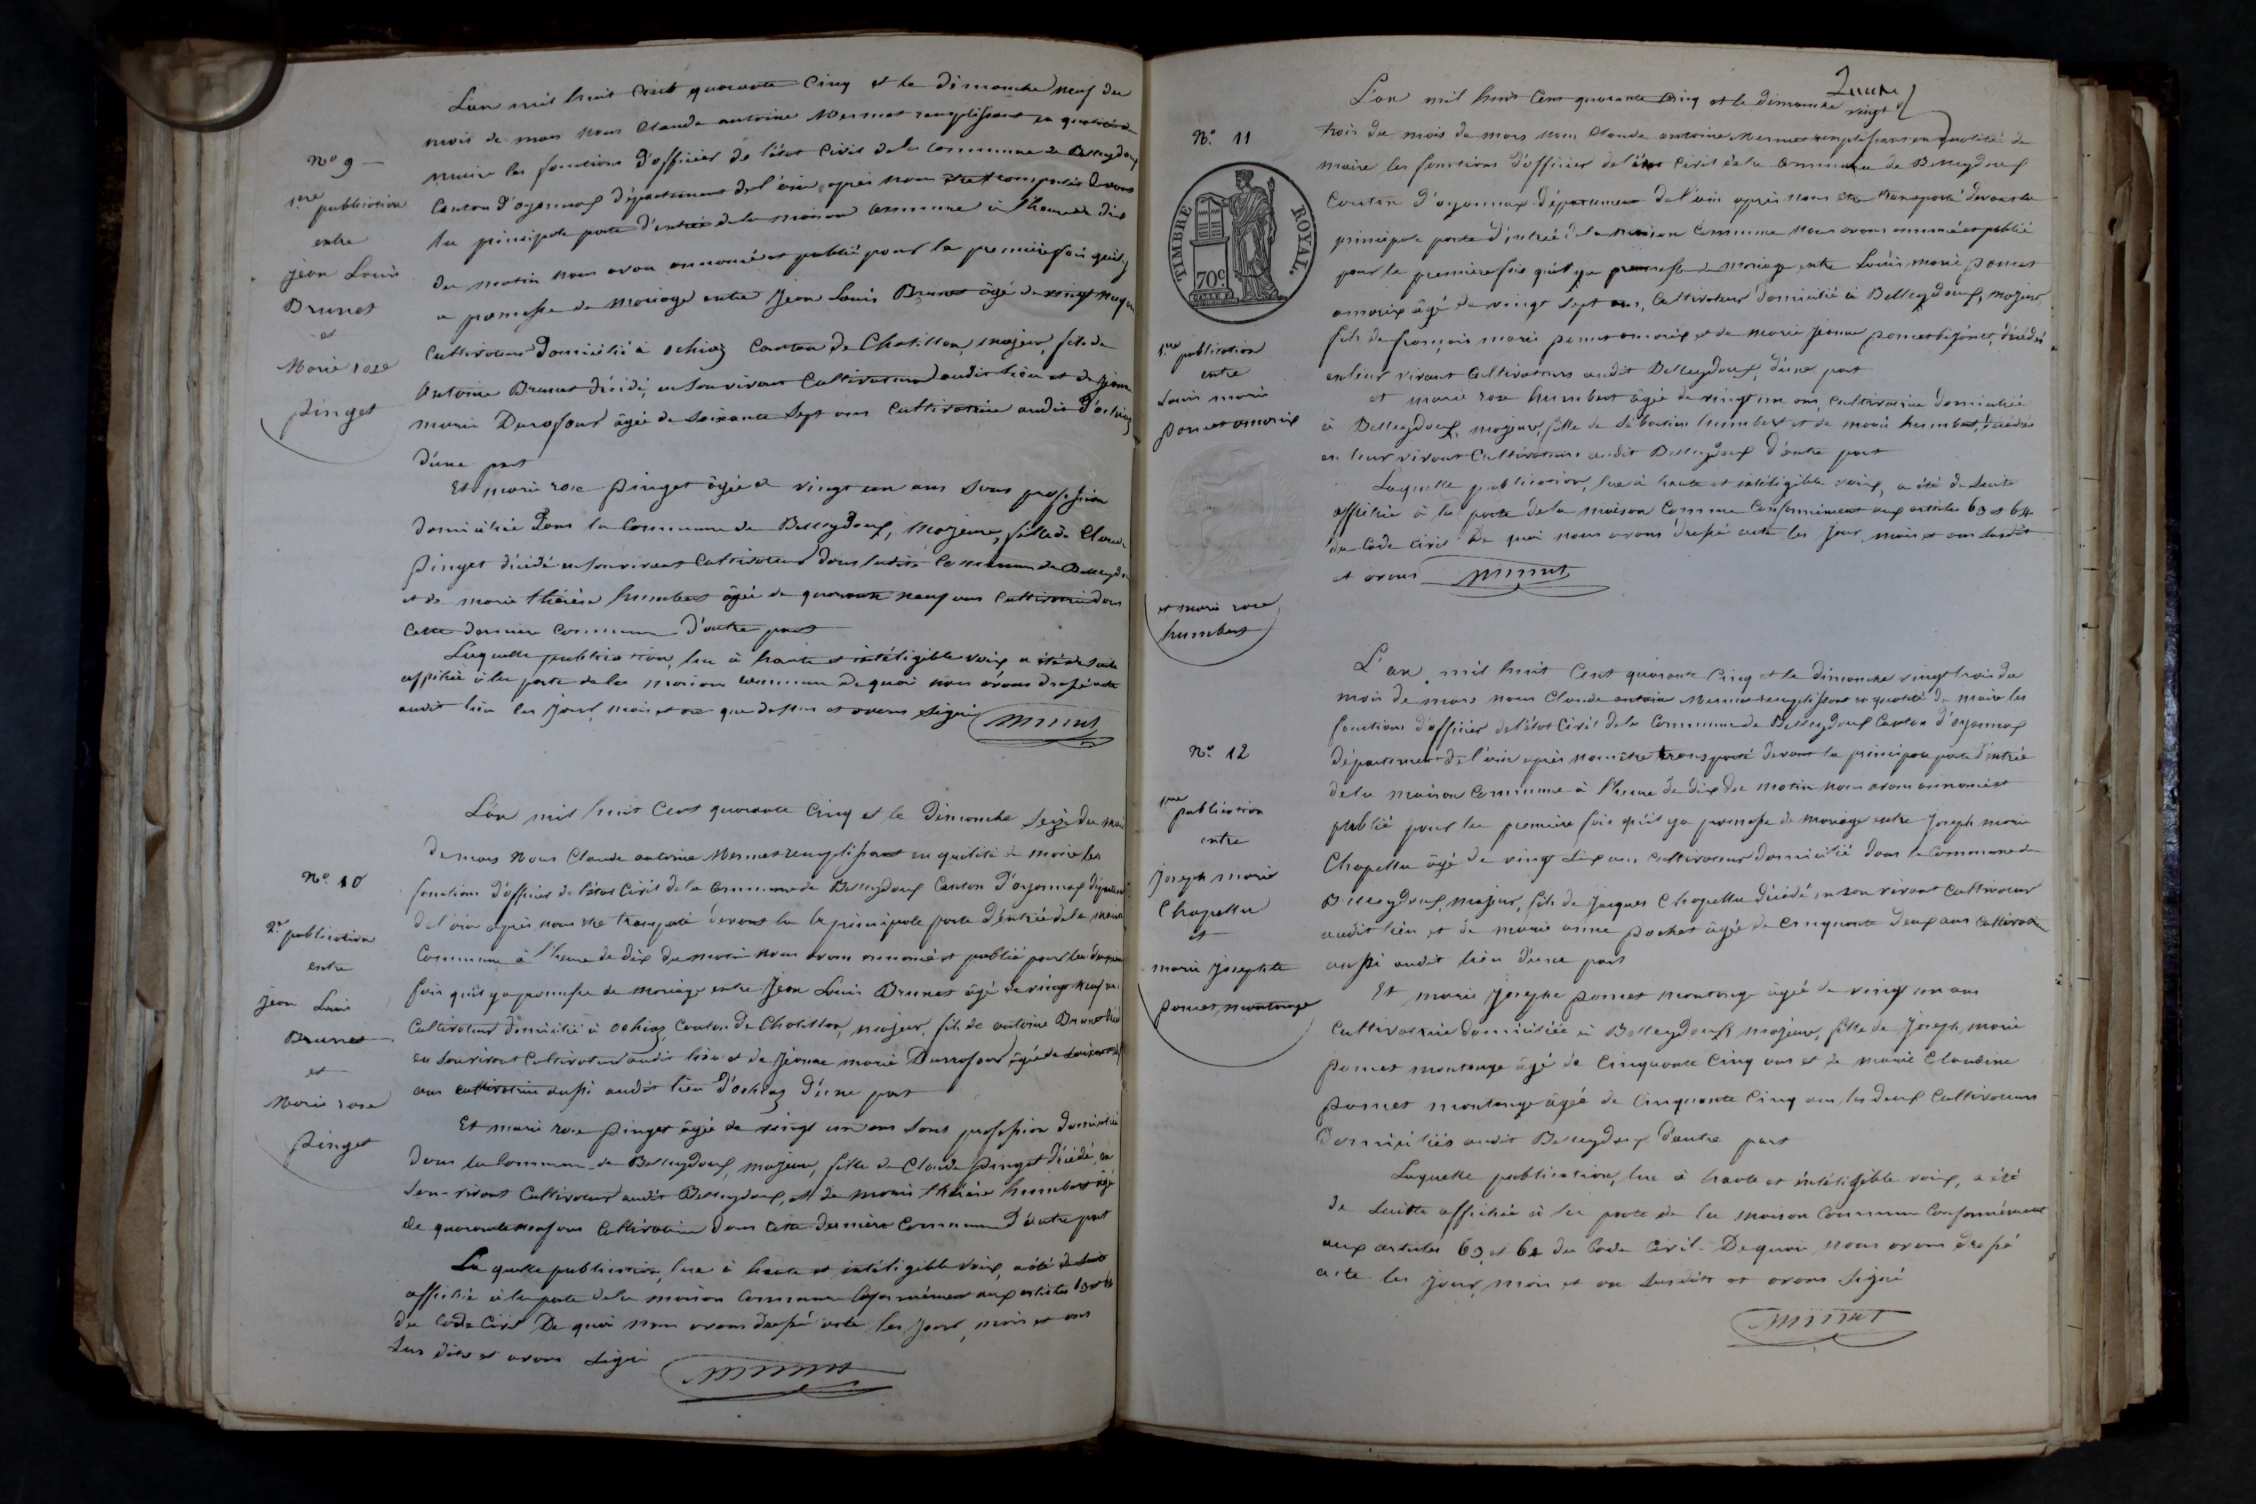 L'an mil huit cent quarante cinq et le dimanche neuf du
mois de mars nous Claude antoine Mermet remplissant en qualité de
maire les fonctions d'officier de l'état civil de la commune de Belleydoux
Canton d'oyonnax département de l'ain, après nous être transporté devant
la principale porte d'entrée de la maison commune à l'heure de dix
du matin nous avons annoncé et publié pour la première fois qu'il y
a promesse de mariage entre Jean Louis Brunet âgé de vingt neuf ans
Cultivateur domicilié à ochiaz Canton de Chatillon, majeur, fils de
Antoine Brunet décédé, en son vivant Cultivateur audit lieu et de Jeanne
marie Durafour âgée de soixante sept ans Cultivatrice audit d'ochiaz
d'une part
Et marie rose pinget âgée de vingt un ans sans profession
domiciliée dans la commune de Belleydoux, majeure, fille de Claude
pinget décédé en son vivant Cultivateur dans ladite commune de Belleydoux
et de marie thérèse humbert âgée de quarante neuf ans Cultivatrice dans
cette dernière commune d'autre part
Laquelle publication, lue à haute et intéligible voix, a été de suite
affichée à la porte de la maison commune de quoi nous avons dressé acte
audit lieu les jour, mois et an que dessus et avons signé Mermet
N° 9
1ère publication
entre
Jean Louis
Brunet
et
Marie rose
pinget
L'an mil huit cent quarante cinq et le dimanche seize du mois
de mars nous Claude antoine Mermet remplissant en qualité de maire les
fonctions d'officier de l'état civil de la commune de Belleydoux Canton d'oyonnax département
de l'ain après nous être transporté devant la principale porte d'entrée de la maison
commune à l'heure de dix du matin nous avons annoncé et publié pour la
fois qu'il y a promesse de mariage entre Jean Louis Brunet âgé de vingt neuf ans
Cultivateur domicilié à ochiaz Canton de Chatillon, majeur, fils de antoine Brunet décédé
en son vivant Cultivateur audit lieu et de Jeanne marie Durafour âgée de soixante sept
ans cultivatrice aussi audit lieu d'ochiaz d'une part
Et marie rose pinget âgée de vingt un ans sans profession domiciliée
dans la commune de Belleydoux, majeure, fille de Claude pinget décédé, en
son vivant Cultivateur audit Belleydoux, et de marie thérèse humbert âgée
de quarante neuf ans Cultivatrice dans cette dernière commune d'autre part
La quelle publication, lue à haute et intéligible voix, a été de suite
affichée à la porte de la maison commune conformément aux articles 63 et 64
du code civil De quoi nous avons dressé acte les jour, mois et an
sus dits et avons signé Mermet
N° 10
2e publication
entre
Jean Louis
Brunet
et
Marie rose
pinget
L'an mil huit cent quarante cinq et le dimanche vingt
trois du mois de mars nous Claude antoine Mermet remplissant en qualité de
maire les fonctions d'officier de l'état civil de la commune de Belleydoux
Canton d'oyonnax département de l'ain après nous être transporté devant la
principale porte d'entrée de la maison commune nous avons annoncé et publié
pour la première fois qu'il y a promesse de mariage entre Louis marie poncet
amorix âgé de vingt sept ans, Cultivateur domicilié à Belleydoux, majeur,
fils de françois marie poncet amorix et de marie Jeanne poncet décédés
en leur vivant Cultivateurs audit Belleydoux, d'une part
et marie rose humbert âgée de vingt un ans, cultivatrice domiciliée
à Belleydoux, majeure, fille de Sébastien humbert et de marie humbert, décédés
en leur vivant Cultivateurs audit Belleydoux d'autre part
Laquelle publication, lue à haute et intéligible voix, a été de suite
affichée à la porte de la maison Commune conformément aux articles 63 et 64
du Code civil De quoi nous avons dressé acte les jour, mois et an susdits
et avons Mermet
N° 11
TIMBRE ROYAL.
70c
1ère publication
entre
Louis marie
poncet amorix
et marie rose
humbert
L'an mil huit cent quarante cinq et le dimanche vingt trois du
mois de mars nous Claude antoine Mermet remplissant en qualité de maire les
fonctions d'officier de l'état civil de la commune de Belleydoux Canton d'oyonnax
département de l'ain après nous être transporté devant la principale porte d'entrée
de la maison commune à l'heure de dix du matin nous avons annoncé et
publié pour la première fois qu'il y a promesse de mariage entre Joseph marie
Chapellu âgé de vingt six ans cultivateur domicilié dans la commune de
Belleydoux, majeur, fils de Jacques Chapellu décédé, en son vivant Cultivateur
audit lieu et de marie anne pochet âgée de cinquante deux ans Cultivatrice
aussi audit lieu d'une part
Et marie Josephte poncet montange âgée de vingt un ans
Cultivatrice domiciliée à Belleydoux majeure, fille de Joseph marie
poncet montange âgé de cinquante cinq ans et de marie Claudine
poncet montange âgée de cinquante cinq ans, les deux Cultivateurs
domiciliés audit Belleydoux d'autre part
Laquelle publication, lue à haute et intéligible voix, a été
de suitte affichée à la porte de la maison commune conformément
aux articles 63 et 64 du Code civil. De quoi nous avons dressé
acte les jour, mois et an susdits et avons signé
Mermet
N° 12
1ère publication
entre
Joseph marie
Chapellu
et
marie Josephte
poncet montange